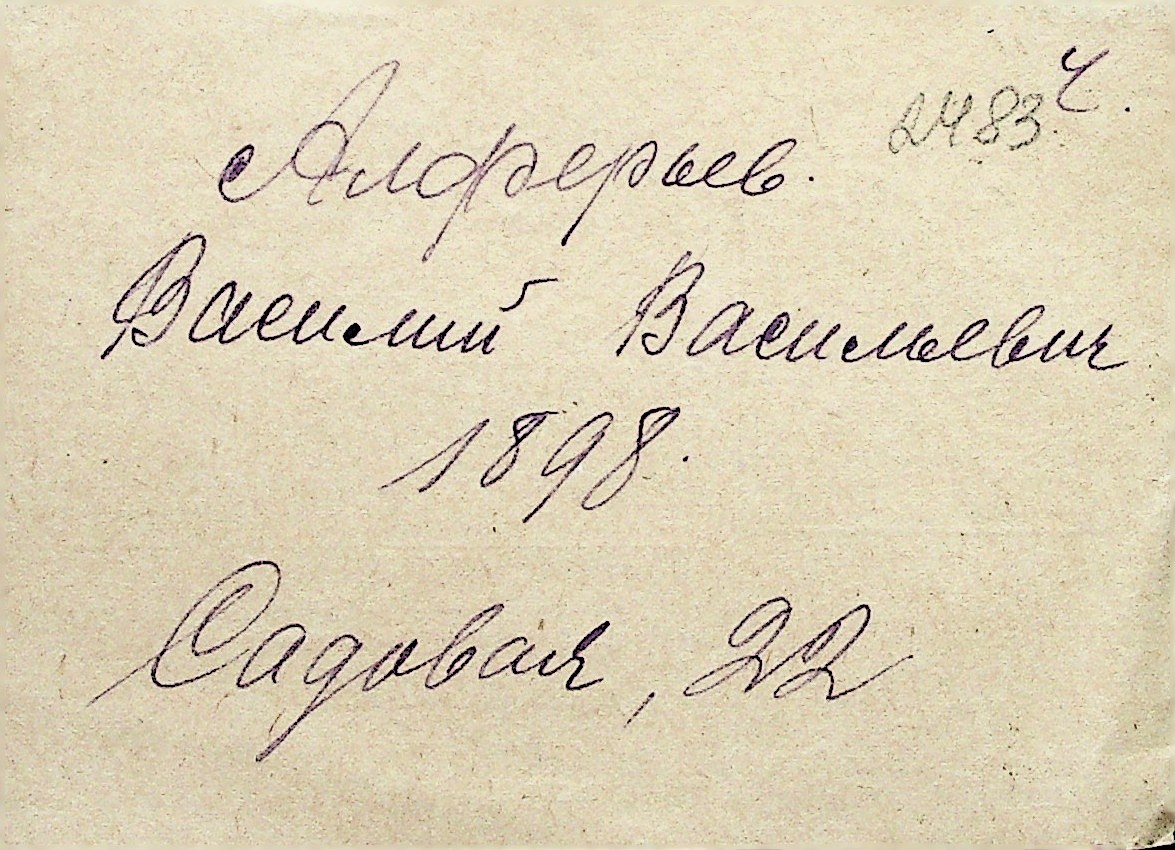 2483 ч.
Алферьев.
Василий Васильевич
1898.
Садовая, 22